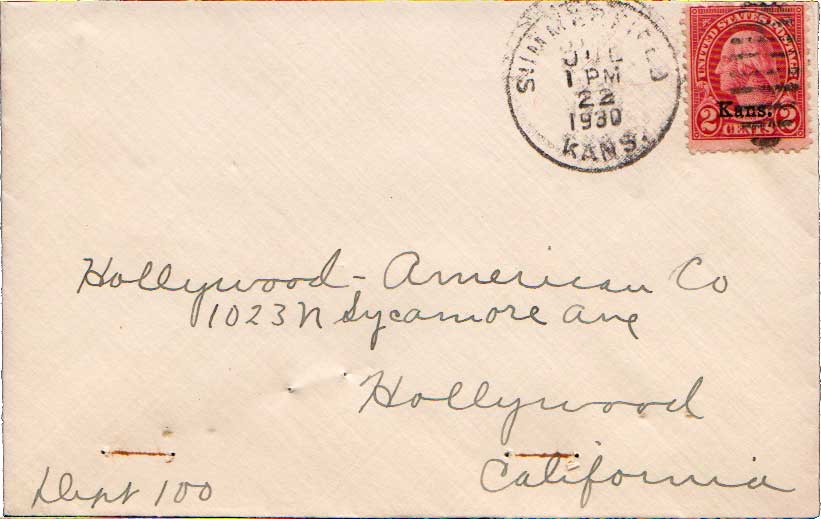 SUMMERFIELD
1 PM
22
1930
KANS.
UNITED STATES POSTAGE
Kans.
2 CENTS 2
Hollywood - American Co
1023 N Sycamore Ave
Hollywood
California
Dept 100